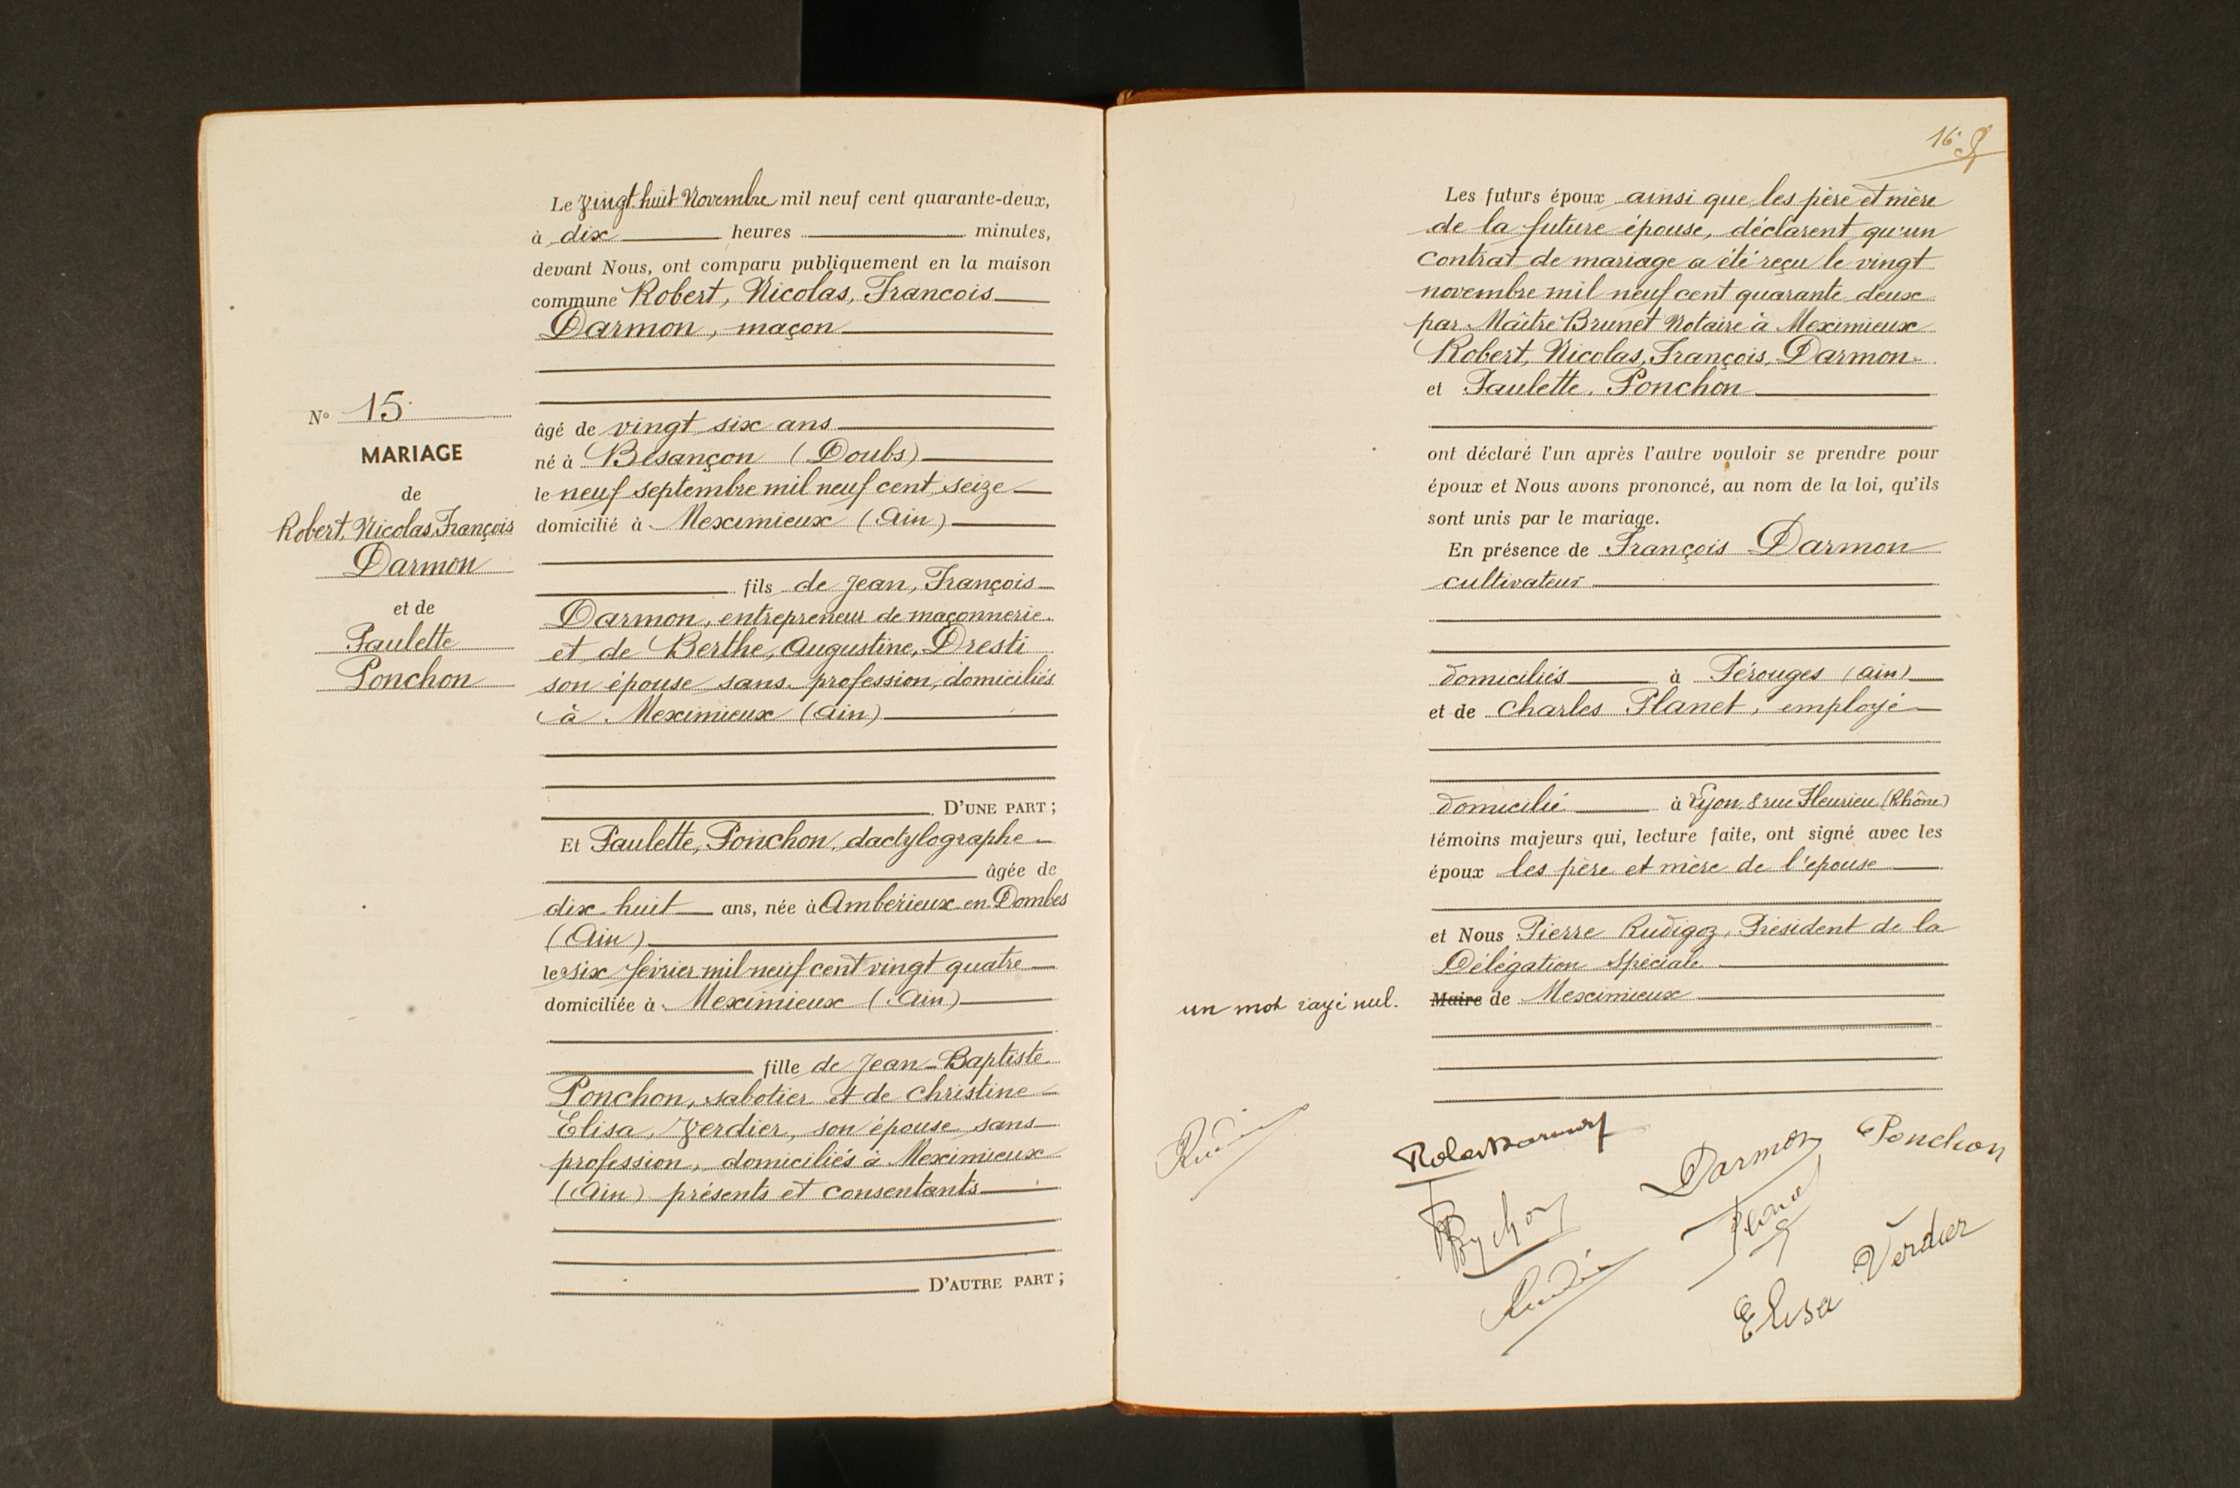 N° 15
MARIAGE
de
Robert, Nicolas, François
Darmon
et de
Paulette
Ponchon
Le vingt huit Novembre mil neuf cent quarante-deux,
à dix heures minutes,
devant Nous, ont comparu publiquement en la maison
commune Robert, Nicolas, Francois
Darmon, maçon
âgé de vingt six ans
né à Besançon (Doubs)
le neuf septembre mil neuf cent seize
domicilié à Meximieux (Ain)
fils de Jean, François
Darmon, entrepreneur de maçonnerie
et de Berthe, Augustine, Dresti
son épouse sans profession, domiciliés
à Meximieux (Ain)
D'UNE PART ;
Et Paulette, Ponchon, dactylographe
âgée de
dix huit ans, née à Ambérieux en Dombes
(Ain)
le six février mil neuf cent vingt quatre
domiciliée à Meximieux (Ain)
fille de Jean-Baptiste
Ponchon, sabotier et de Christine
Elisa, Verdier, son épouse sans
profession, domiciliés à Meximieux
(Ain) présents et consentants
D'AUTRE PART ;
16
Les futurs époux ainsi que les père et mère
de la future épouse, déclarent qu'un
contrat de mariage a été reçu le vingt
novembre mil neuf cent quarante deux
par Maître Brunet Notaire à Meximieux
Robert, Nicolas, François, Darmon
et Paulette, Ponchon
ont déclaré l'un après l'autre vouloir se prendre pour
époux et Nous avons prononcé, au nom de la loi, qu'ils
sont unis par le mariage.
En présence de François Darmon
cultivateur
domiciliés à Pérouges (Ain)
et de Charles Planet, employé
domicilié à Lyon 8 rue Fleurieu (Rhône)
témoins majeurs qui, lecture faite, ont signé avec les
époux les père et mère de l'epouse
et Nous Pierre Rudigoz, Président de la
Délégation Spéciale
Maire de Meximieux
un mot rayé nul.
Darmon
Ponchon
Elisa Verdier